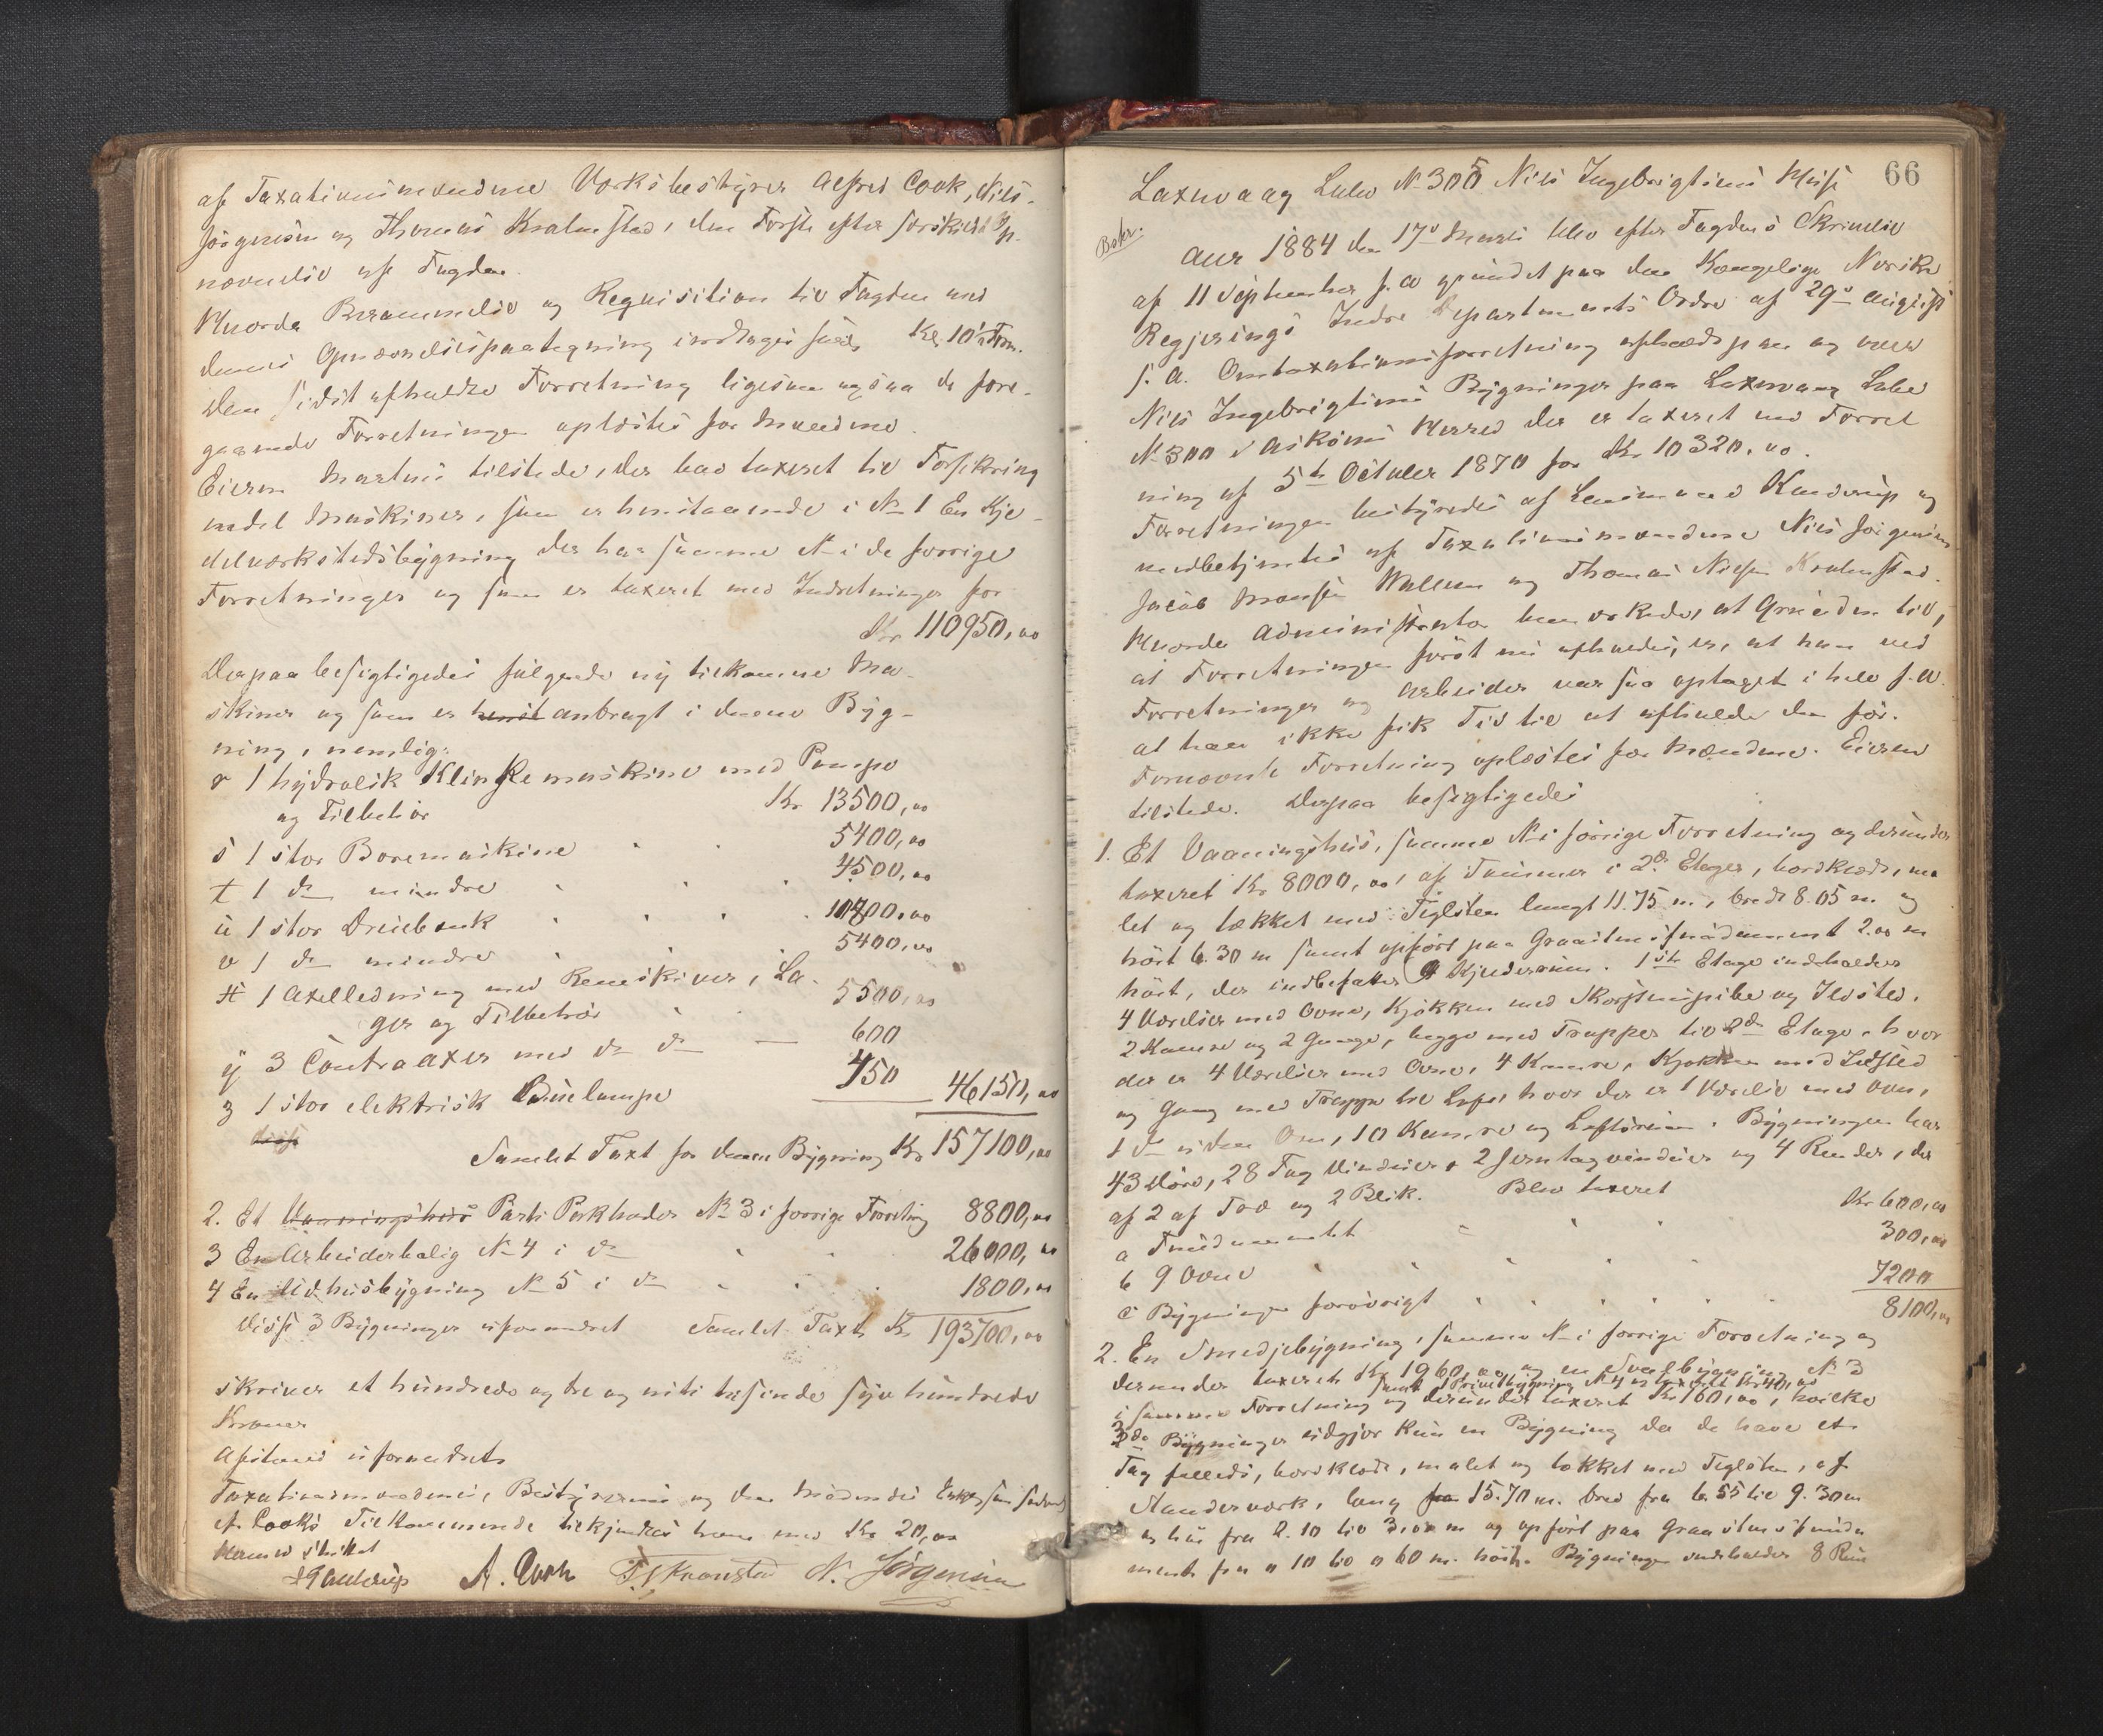 af Taxationsmændene Værksbestyrer Alfred Cook, Niels
Jörgensen og Thomas Kralmsted, den Förste efter særskild Op-
nævnelse af Fogden.
Hvorda Berammelse og Requisition til Fogden med
dennes Opnævnelsespaategning indtages saa Kl. 10 Form.
Den sidst afholdte Forretning ligesom ogsaa de fore-
gaaende Forretninger oplæstes for Mændene.
Eieren tilstede, der bad taxeret til Forsikring
endel Maskiner, som er henstaaende i No 1 En Kje-
delværkstedsbygning der har samme No i de forrige
Forretninger og som er taxeret med Indretninger for
Kr 110950,00
Derpaa besigtigedes fölgende ny tilkomne Ma-
skiner og som er henst anbragt i denne Byg-
ning, nemlig:
r 1 hydraulisk Klinkemaskine med Pumpe
og Tilbehör Kr 13500,00
s 1 stor Boremaskine 5400,00
t 1 do mindre 4500,00
u 1 stor Dreiebænk 10800,00
v 1 do mindre 5400,00
x 1 Axelledning med Remskiver, La-
ger og Tilbehör 5500,00
y 3 Contraaxer med do do 600
z 1 stor elektrisk Buelampe 450 46150,00
disse
Samlet Taxt for denne Bygning Kr 157100,00
2. Et Vaaningshuus Parti Pakboder No 3 i forrige Forretning 8800,00
3 En Arbeiderbolig No 4 i do 26000,00
4 En Udhusbygning No 5 i do 1800,00
disse 3 Bygninger uforandret Samlet Taxt Kr 193700,00
skriver et hundrede og tre og niti tusinde syv hundrede
Kroner
Afstand uforandret
Taxationsmændenes, Bestyrerens og
A. Cooks Tilkommende tilkjendes ham med Kr 20,00
Hermed sluttet
A. Cook T. Kralmsted N. Jörgensen
66
Laxevaag Lübo No 305 Niels Ingebrigtsens Huse
Bekr.
Aar 1884 den 17de Marts blev efter Fogdens Skrivelse
af 11 September f. A. grundet paa den Kongelige Norske
Regjerings Indre Departements Ordre af 29de August
f. A. Omtaxationsforretning afholdt paa og over
Niels Ingebrigtsens Bygninger paa Laxevaag Lübo
No 300 i Asköens Herred der er taxeret ved Forret
ning af 5te October 1870 for Kr 10320,00.
Forretningen bestyredes af Lensmand Kauderup og
medbetjentes af Taxationsmændene Niels Jörgensen
Jacob Monsen Wallem og Thomas Nielsen Kralmsted.
Hvorda Administrator bemærkede, at Grunden til,
at Forretningen först nu afholdes, er, at han med
Forretninger og Arbeider var saa optaget i hele f. A.
at han ikke fik Tid til at afholde den för.
Fornævnte Forretning oplæstes for Mændene. Eieren
tilstede. Derpaa besigtigedes
1. Et Vaaningshus, samme No i forrige Forretning og derunder
taxeret Kr 8000,00, af Tömmer i 2de Etager, bordklædt, ma
let og tækket med Teglsten langt 11.75 m, bredt 8.05 m og
höit 6.30 m samt opfört paa Graastensfundament 2.00 m
höit, der indbefatter 4 Kjelderrum. 1ste Etage indeholder
4 Værelser med Ovne, Kjökken med Skorstenspibe og Ildsted,
2 Kamre og 2 Gange, begge med Trapper til 2den Etage, hvor
der er 4 Værelser med Ovne, 4 Kamre, Kjökken med Ildsted
og Gang med Trappe til Loft, hvor der er 1 Værelse med Ovn,
1 do uden Ovn, 10 Kamre og Loftsrum. Bygningen har
43 Döre, 28 Fag Vinduer, 2 Jerntagvinduer og 4 Render, der
af 2 af Træ og 2 Blik. Blev taxeret
a Fundamentet Kr 600,00
b 9 Ovne 300,00
c Bygningen forövrigt 7200
8100,00
2. En Smedjebygning, samme No i forrige Forretning og
derunder taxeret Kr 1960,00, og en Svalbygning No 3
samt 1 Privetbygning No 4 er taxeret Kr 40,00
i samme Forretning og derunder taxeret Kr 160,00, hvilke
3de Bygninger udgjör kun en Bygning da de have et
Tag fælleds, bordklædt, malet og tækket med Teglsten, af
Standerværk, lang fra 15.70 m. bred fra 6.55 til 9.30 m
og höi fra 2.10 til 3,00 m og opfört paa Graastensfunda
ment fra 0 10 til 0 60 m. höit. Bygningen indeholder 8 Rum